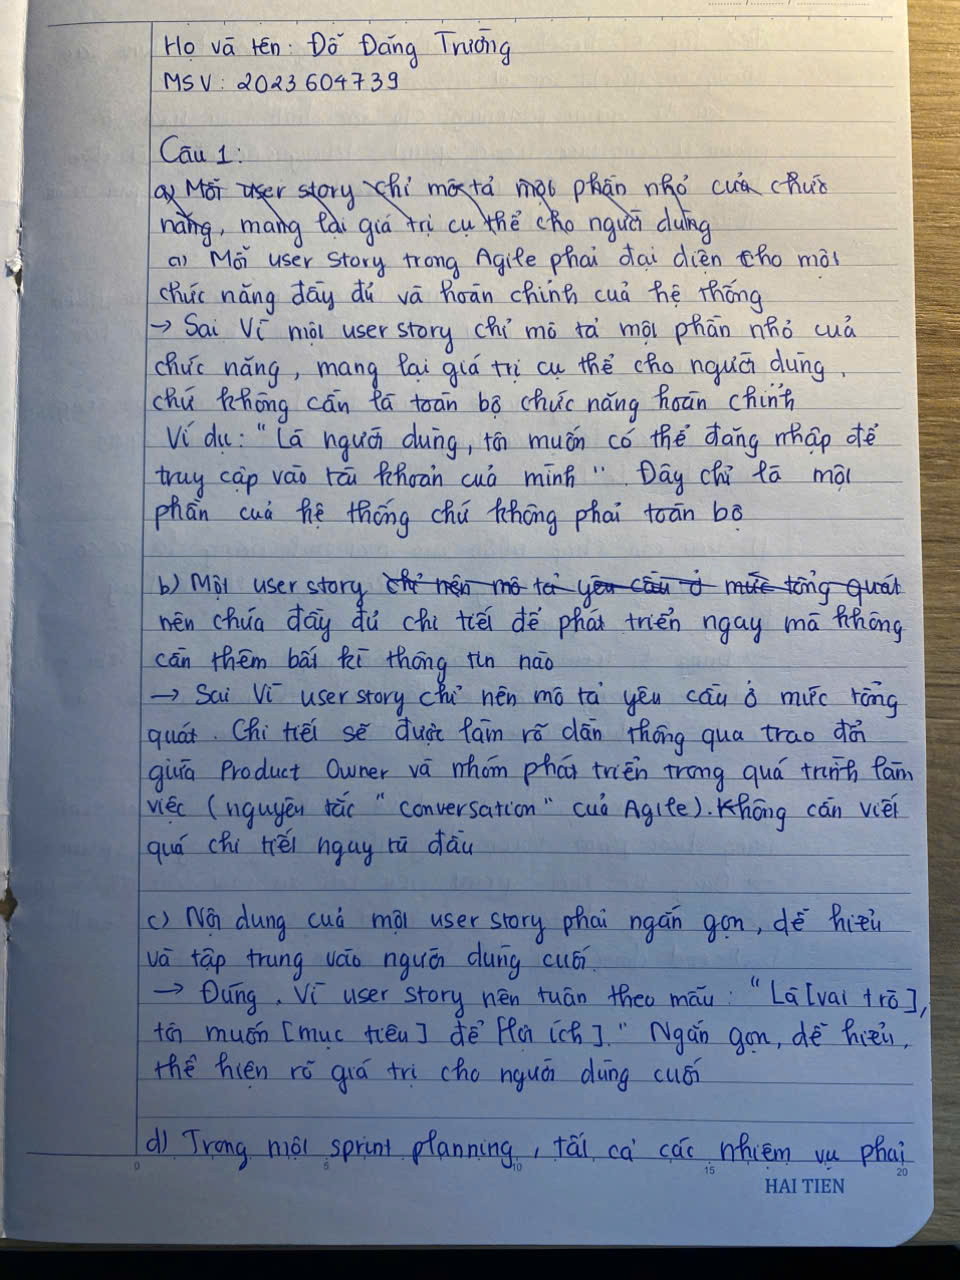 Họ và tên: Đỗ Đăng Trường
MSV: 2023604739
Câu 1:
a) Mỗi user story chỉ mô tả một phần nhỏ của chức
năng, mang lại giá trị cụ thể cho người dùng
a) Mỗi user story trong Agile phải đại diện cho một
chức năng đầy đủ và hoàn chỉnh của hệ thống
→ Sai Vì một user story chỉ mô tả một phần nhỏ của
chức năng, mang lại giá trị cụ thể cho người dùng,
chứ không cần là toàn bộ chức năng hoàn chỉnh
Ví dụ: "Là người dùng, tôi muốn có thể đăng nhập để
truy cập vào tài khoản của mình". Đây chỉ là một
phần của hệ thống chứ không phải toàn bộ
b) Một user story chỉ nên mô tả yêu cầu ở mức tổng quát
nên chứa đầy đủ chi tiết để phát triển ngay mà không
cần thêm bất kì thông tin nào
→ Sai Vì user story chỉ nên mô tả yêu cầu ở mức tổng
quát. Chi tiết sẽ được làm rõ dần thông qua trao đổi
giữa Product Owner và nhóm phát triển trong quá trình làm
việc (nguyên tắc "conversation" của Agile). Không cần viết
quá chi tiết ngay từ đầu
c) Nội dung của một user story phải ngắn gọn, dễ hiểu
và tập trung vào người dùng cuối.
→ Đúng. Vì user story nên tuân theo mẫu: "Là [vai trò],
tôi muốn [mục tiêu] để [lợi ích]." Ngắn gọn, dễ hiểu,
thể hiện rõ giá trị cho người dùng cuối
d) Trong một sprint planning, tất cả các nhiệm vụ phải
0 5 10 15 20
HAI TIEN